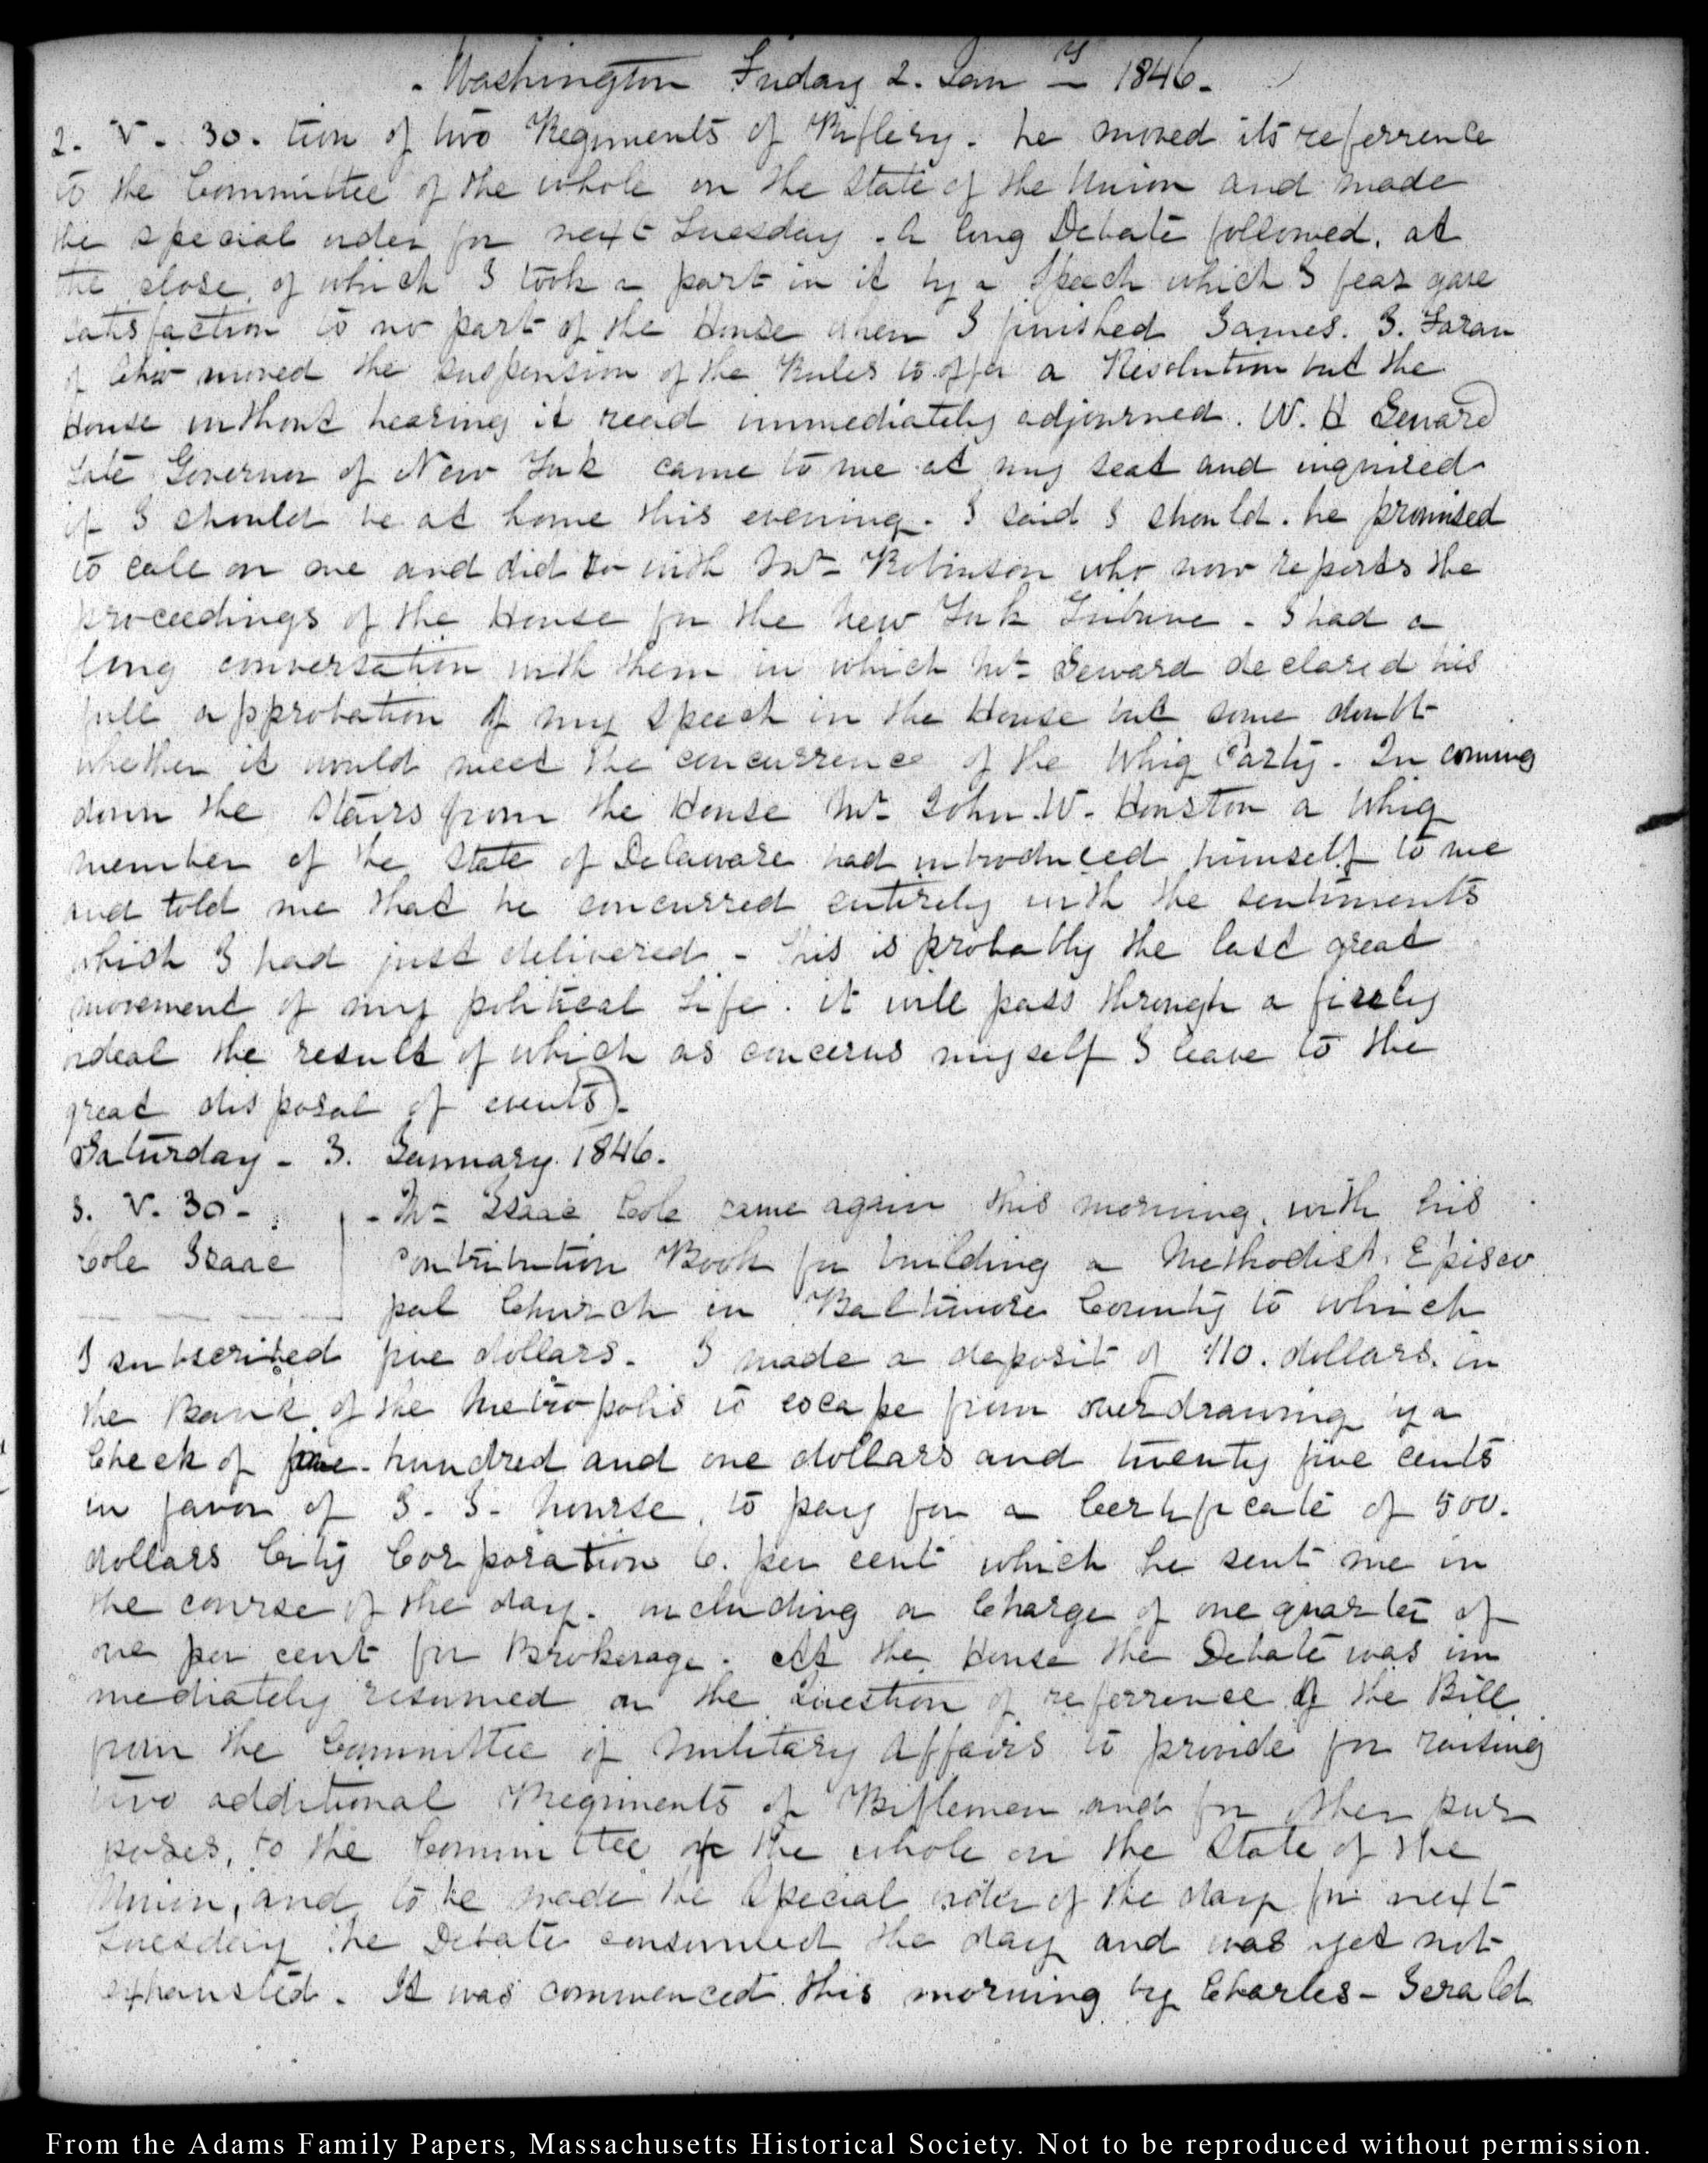 Washington Friday 2. Jan.y 1846.
2. V. 30. tion of two Regiments of Riflery. he moved its referrence
to the Committee of the whole on the State of the Union and made
the special order for next Tuesday. A long Debate followed, at
the close, of which I took a part in it by a Speech which I fear gave
satisfaction to no part of the House when I finished James. J. Faran
of Ohio moved the suspension of the Rules to offer a Resolution but the
House without hearing it read immediately adjourned. W. H Seward
late Governor of New York came to me at my seat and inquired
if I should be at home this evening. I said I should. he promised
to call on me and did so with Mr Robinson who now reports the
proceedings of the House for the New York Tribune. I had a
long conversation with them in which Mr Seward declared his
full approbation of my speech in the House but some doubt
whether it would meet the concurrence of the Whig Party. In coming
down the Stairs from the House Mr John. W. Houston a Whig
member of the State of Delaware had introduced himself to me
and told me that he concurred entirely with the sentiments
which I had just delivered. This is probably the last great
movement of my political Life. it will pass through a fiery
ordeal the result of which as concerns myself I leave to the
great disposal of events).
Saturday - 3. January 1846.
3. V. 30 - Mr Isaac Cole came again this morning, with his
Cole Isaac contribution Book for building a Methodist Episco
pal Church in Baltimore County to which
I subscribed five dollars. I made a deposit of 110. dollars. in
the Bank of the Metropolis to escape from overdrawing by a
Check of five hundred and one dollars and twenty five cents
in favor of J. J. Nourse, to pay for a Certificate of 500.
dollars City Corporation 6. per cent which he sent me in
the course of the day. including a Charge of one quarter of
one per cent for Brokerage. At the House the Debate was im
mediately resumed on the Question of referrence of the Bill
from the Committee of Military Affairs to provide for raising
two additional Regiments of Riflemen and for other pur
poses, to the Committee of the whole on the State of the
Union, and to be made the Special order of the day for next
Tuesday the Debate consumed the day and was yet not
exhausted. It was commenced this morning by Charles - Jerald
From the Adams Family Papers, Massachusetts Historical Society. Not to be reproduced without permission.